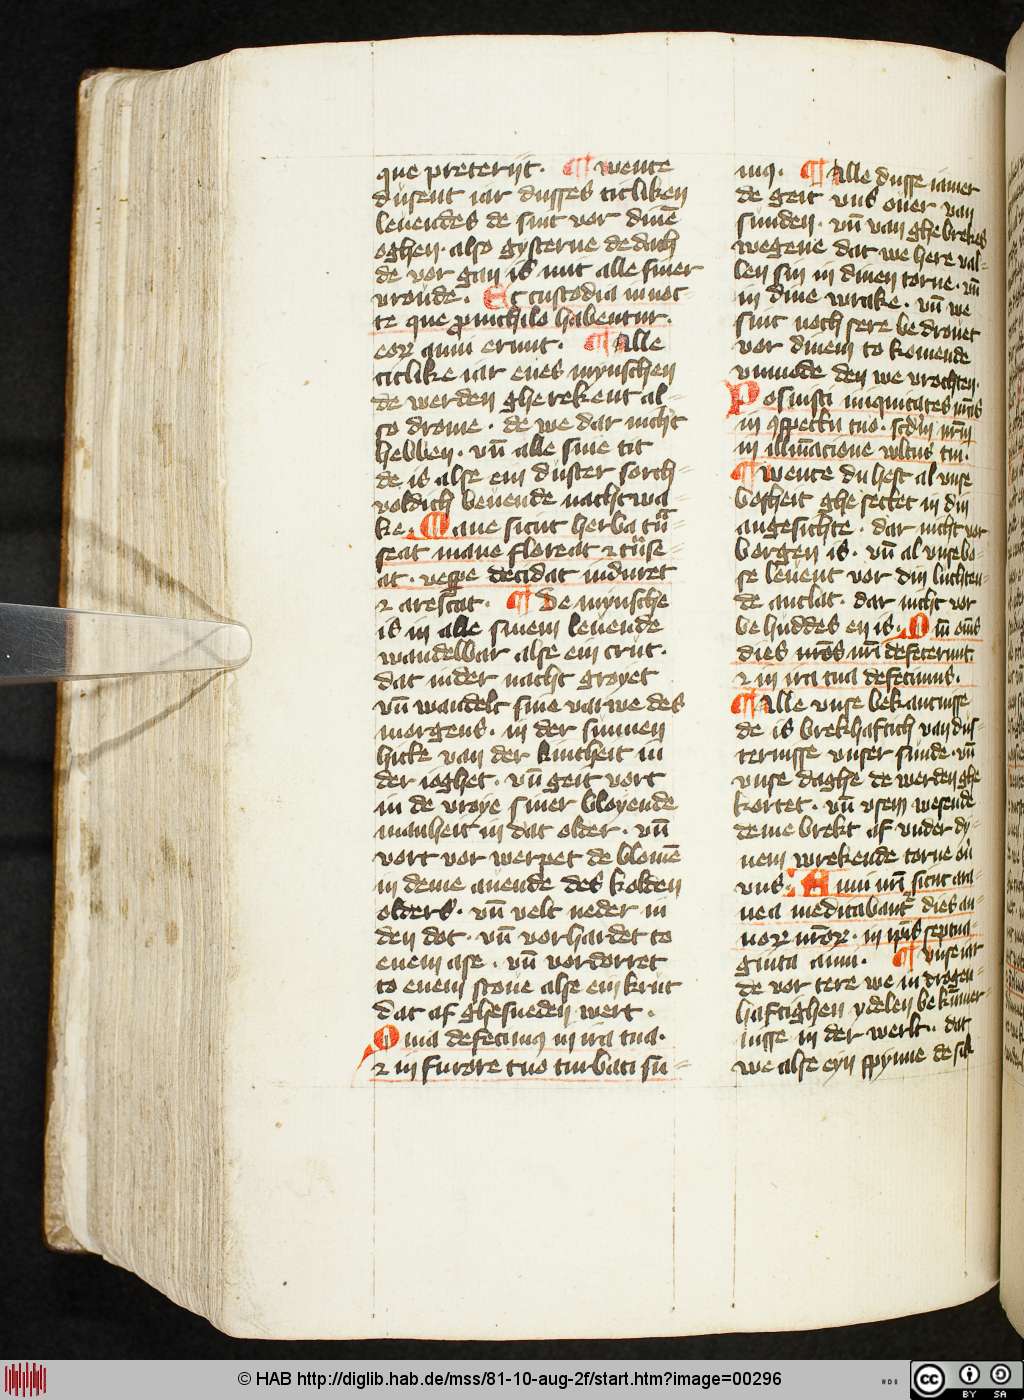 que preterijt. ¶ wente
dusent iar dusses titliken
leuendes de sint vor dinē
oghen. also gysterne de dach
de vor gan is mit alle siner
vroude. Et custodia in noc-
te que pro nichilo habentur.
eoꝝ anni erunt. ¶ Alle
titlike iar enes mynschen
de werden gherekent al-
so drome. de we dar nicht
hebben. vn̄ alle sine tit
de is alse ein duster sorch-
voldich beuende nacht wa-
ke. Mane sicut herba trā-
seat mane floreat ⁊ trāse-
at. vespe decidat induret
⁊ arescat. ¶ De mynsche
is in alle sinem leuende
wandelbar alse ein crut.
dat in der nacht groyet
vn̄ wandelt sine varwe des
morgens. in der sunnen
hicke van der kintheit in
der ioghet. vn̄ geit vort
in de vroye siner bloyende
manheit in dat older. vn̄
vort vor werpet de blomē
in deme auende des kolden
olders. vn̄ velt neder in
den dot. vn̄ vorhardet to
enem ase. vn̄ vordorret
to enem stoue alse ein krut
dat af ghesneden wert.
Quia defecimꝰ in ira tua.
⁊ in furore tuo turbati su-
mꝰ. ¶ Alle dusse iamer
de geit vns ouer van
sunden. vn̄ van ghebrekes
wegene dat we here val-
len sin in dinen torne. vn̄
in dine wrake. vn̄ we
sint noch sere bedrouet
vor dinem to komende
vnmode den we vrochten.
Posuisti iniquitates nr̄as
in ꝯspectu tuo. sclm̄ nr̄m
in illuīacione vultus tui.
¶ Wente du hest al vnse
bosheit ghesettet in din
angesichte. dar nicht vor
borgen is. vn̄ al vnse bo-
se leuent vor din luchten-
de antlat. dar nicht vor
behuddes en is. Qm̄ om̄s
dies nr̄os nr̄i defecerunt.
⁊ in ira tua defecimus.
¶ Alle vnse bekantnisse
de is brekhaftich van dus-
ternisse vnser sunde. vn̄
vnse daghe de werden ghe
kortet. vn̄ vsem wesende
deme brekt af vnder dy-
nem wrekende torne ou̾
vns. Anni nr̄i sicut ara-
nea meditabantr̄ dies an-
noꝝ nr̄oꝝ. in ip̄is septua-
ginta anni. ¶ vnse iar
de vor tere we in drogen-
haftighen ydelen bekūmer-
nisse in der werlt. dat
we alse eyn spynne de sik
© HAB http://diglib.hab.de/mss/81-10-aug-2f/start.htm?image=00296
HAB
cc BY SA